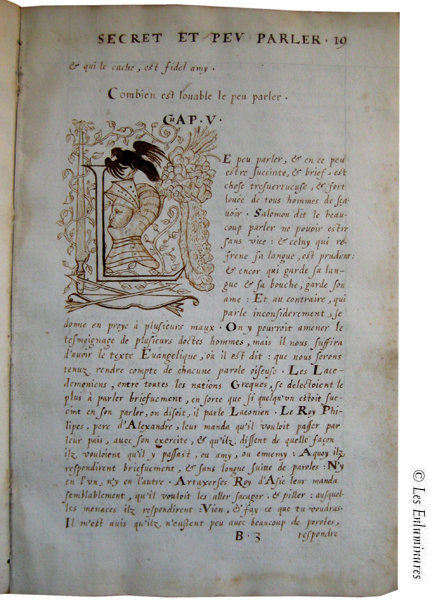 SECRET ET PEV PARLER · 19
& qui le cache, est fidel amy.
Combien est louable le peu parler.
CHAP. V.
LE peu parler, & en ce peu
estre succinte, & brief, est
chose tresvertueuse, & fort
louée de tous hommes de sça
voir. Salomon dit le beau-
coup parler ne pouvoir estre
sans vice: & celuy qui re-
frene sa langue, est prudent:
& encor qui garde sa lan-
gue & sa bouche, garde son
ame: Et au contraire, qui
parle inconsiderement, se
donne en proye à plusieurs maux. On y pourroit amener le
tesmoignage de plusieurs doctes hommes, mais il nous suffira
d'avoir le texte Euangelique, où il est dit: que nous serons
tenuz rendre compte de chacune parole oiseuse. Les Lace-
demoniens, entre toutes les nations Greques, se delectoient le
plus à parler briefuement, en sorte que si quelqu'vn estoit suc-
cint en son parler, on disoit, il parle Laconien. Le Roy Phi-
lippes, pere d'Alexandre, leur manda qu'il vouloit passer par
leur païs, avec son exercite, & qu'ilz dissent de quelle façon
ilz vouloient qu'il y passast, ou amy, ou ennemy: A quoy ilz
respondirent briefuement, & sans longue suitte de paroles: N'y
en l'vn, n'y en l'autre. Artaxerses Roy d'Asie leur manda
semblablement, qu'il vouloit les aller sacager, & piller: ausquel-
les menaces ilz respondirent: Vien, & fay ce que tu voudras.
Il m'est auis qu'ilz n'eussent peu avec beaucoup de paroles,
B. 3 respondre
© Les Enluminures